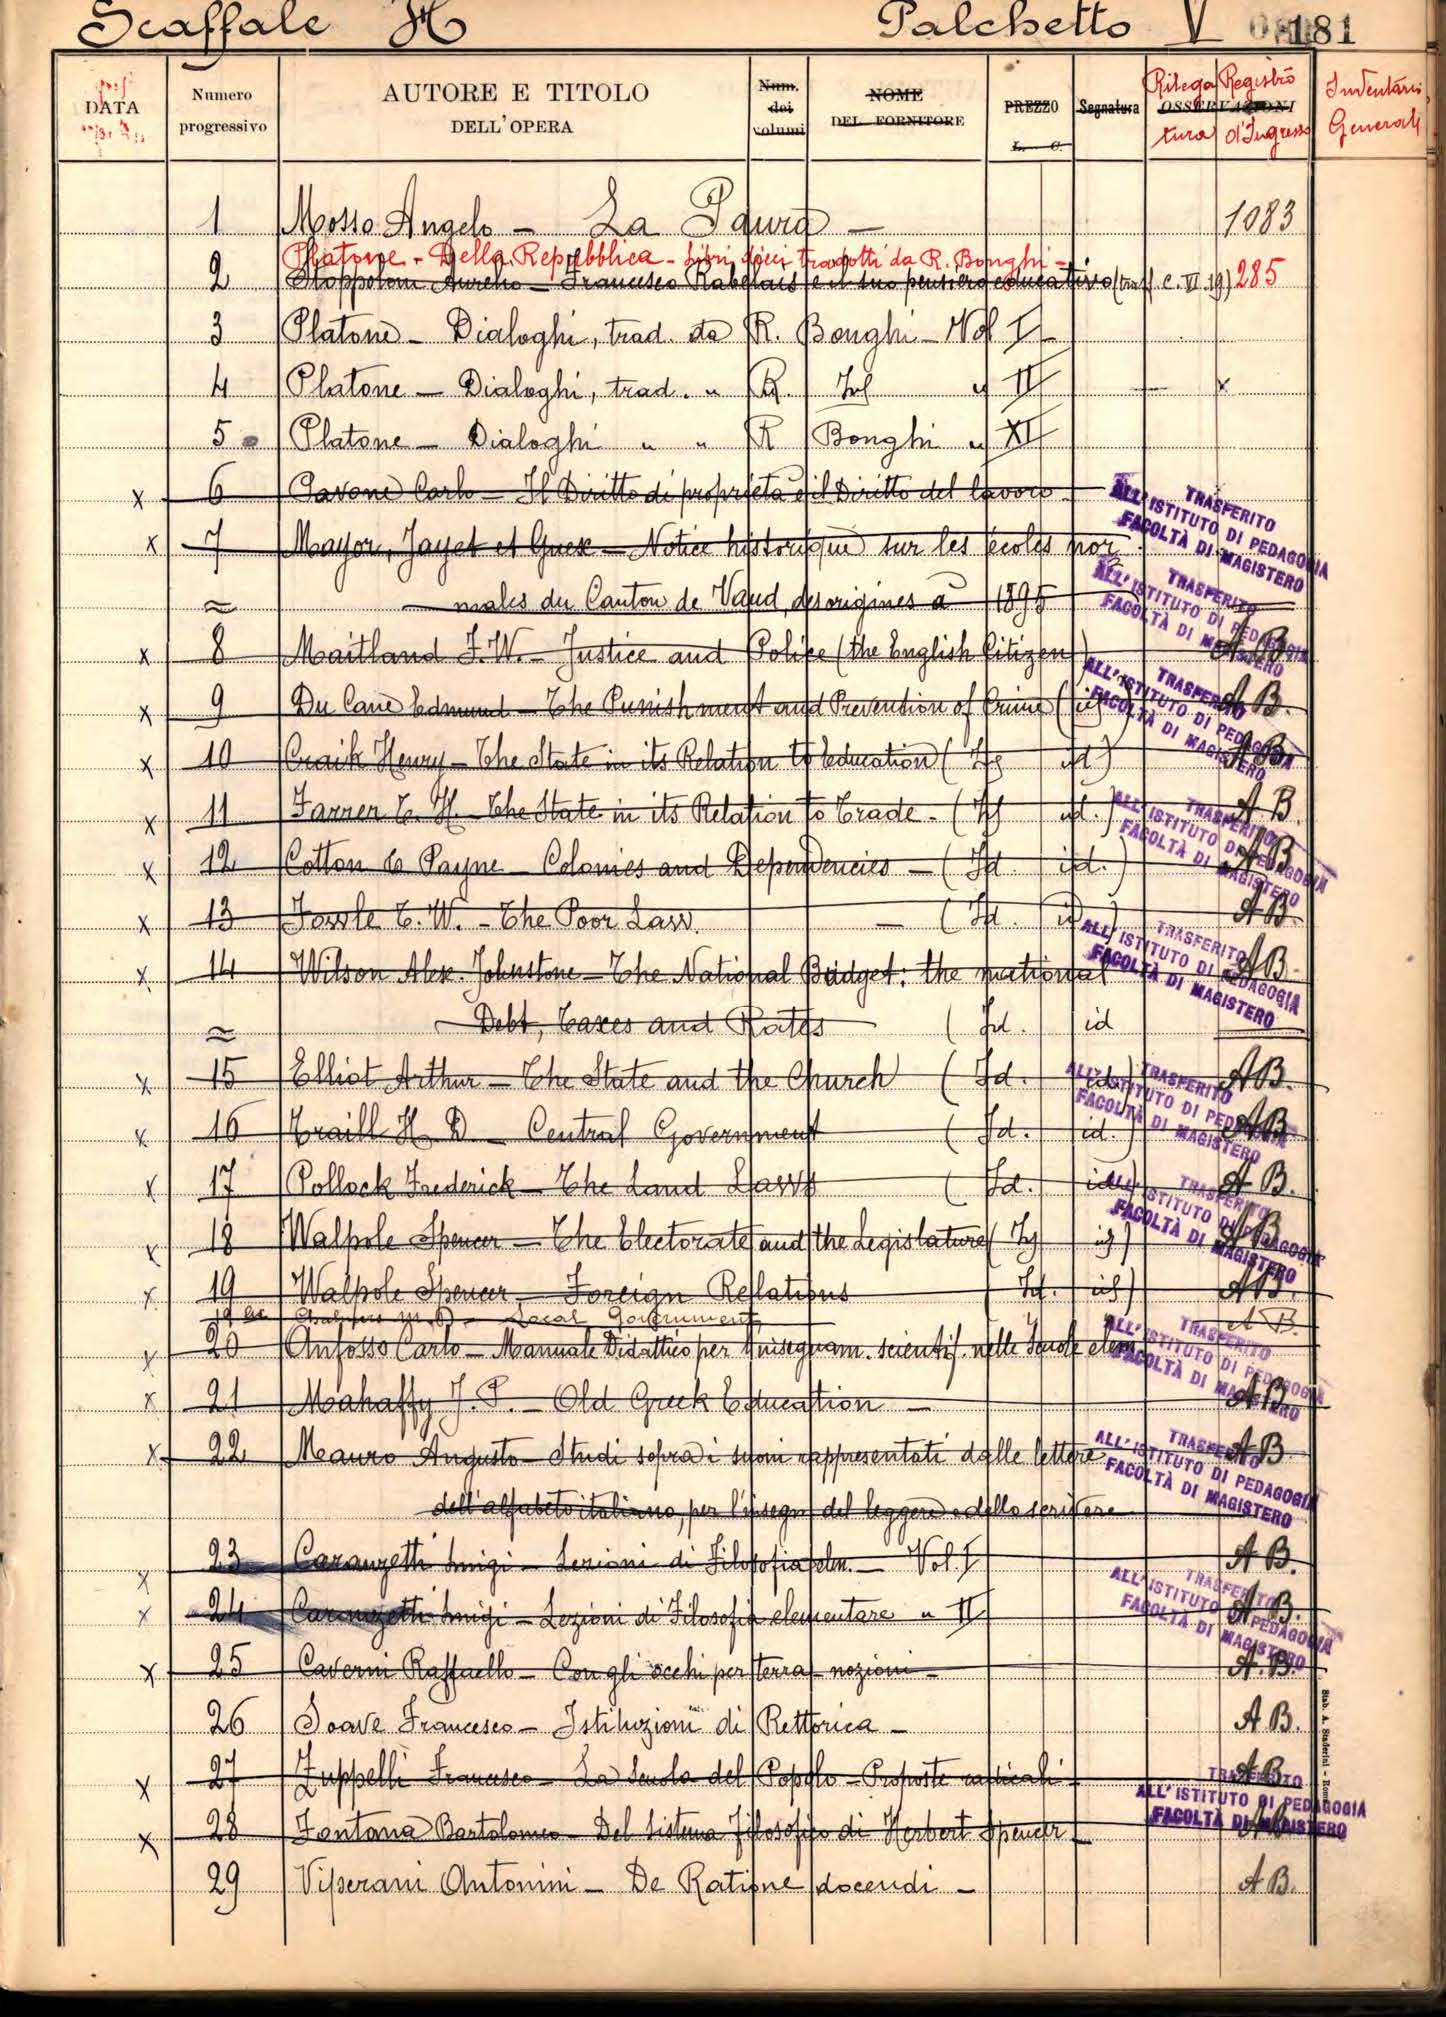 Scaffale H Palchetto V 181
DATA
Numero progressivo
AUTORE E TITOLO DELL'OPERA
Num. dei volumi
NOME DEL FORNITORE
PREZZO L. C.
Segnatura
OSSERVAZIONI
Rilegatura
Registro d'Ingresso
Inventario Generale
1 Mosso Angelo - La Paura - 1083
Platone - Della Repubblica - Libri dieci tradotti da R. Bonghi -
2 Stoppoloni Aurelio - Francesco Rabelais e il suo pensiero educativo (trasf. c. VI. 19) 285
3 Platone - Dialoghi, trad. da R. Bonghi - Vol I -
4 Platone - Dialoghi, trad. " R. Id " II x
5 Platone - Dialoghi " " R Bonghi " XI
x 6 Pavone Carlo - Il Diritto di proprietà e il Diritto del lavoro -
x 7 Mayor, Jayet et Guex - Notice historique sur les écoles nor
males du Canton de Vaud, des origines à 1895
x 8 Maitland F. W. - Justice and Police (the English Citizen) A B.
x 9 Du Cane Edmund - The Punishment and Prevention of Crime ( id ) A B.
x 10 Craik Henry - The State in its Relation to Education ( Id id ) A B.
x 11 Farrer T. H. - The State in its Relation to Trade - ( Id id. ) A B.
x 12 Cotton & Payne - Colonies and Dependencies - ( Id id. ) A B
x 13 Fowle T. W. - The Poor Law. - ( Id. id ) A B.
x 14 Wilson Alex. Johnstone - The National Budget: the national A B.
Debt, Taxes and Rates ( Id. id
x 15 Elliot Arthur - The State and the Church ( Id. id. ) A B.
x 16 Traill H D - Central Government ( Id. id. ) A B
x 17 Pollock Frederick - The Land Laws ( Id. id ) A B.
x 18 Walpole Spencer - The Electorate and the Legislature ( Id id ) A B
x 19 Walpole Spencer - Foreign Relations ( Id. id ) A B.
19 bis Chalmers M. D. - Local Government A B.
x 20 Anfosso Carlo - Manuale Didattico per l'insegnam. scientif. nelle Scuole elem.
x 21 Mahaffy J. P. - Old Greek Education - A B.
x 22 Mauro Augusto - Studi sopra i suoni rappresentati dalle lettere A B.
dell'alfabeto italiano, per l'insegn del leggere e dello scrivere
x 23 Luigi - Lezioni di Filosofia elem. - Vol. I A B.
x 24 Luigi - Lezioni di Filosofia elementare " II A B.
x 25 Caverni Raffaello - Con gli occhi per terra - nozioni - A. B.
26 Soave Francesco - Istituzioni di Rettorica - A B.
x 27 Zuppelli Francesco - La Scuola del Popolo - Proposte radicali - A B
x 28 Fontana Bartolomeo - Del Sistema filosofico di Herbert Spencer - A B
29 Viperani Antonini - De Ratione docendi - A B.
TRASFERITO
ALL'ISTITUTO DI PEDAGOGIA
FACOLTÀ DI MAGISTERO
TRASFERITO
ALL'ISTITUTO DI PEDAGOGIA
FACOLTÀ DI MAGISTERO
TRASFERITO
ALL'ISTITUTO DI PEDAGOGIA
FACOLTÀ DI MAGISTERO
TRASFERITO
ALL'ISTITUTO DI PEDAGOGIA
FACOLTÀ DI MAGISTERO
TRASFERITO
ALL'ISTITUTO DI PEDAGOGIA
FACOLTÀ DI MAGISTERO
TRASFERITO
ALL'ISTITUTO DI PEDAGOGIA
FACOLTÀ DI MAGISTERO
TRASFERITO
ALL'ISTITUTO DI PEDAGOGIA
FACOLTÀ DI MAGISTERO
TRASFERITO
ALL'ISTITUTO DI PEDAGOGIA
FACOLTÀ DI MAGISTERO
TRASFERITO
ALL'ISTITUTO DI PEDAGOGIA
FACOLTÀ DI MAGISTERO
TRASFERITO
ALL'ISTITUTO DI PEDAGOGIA
FACOLTÀ DI MAGISTERO
TRASFERITO
ALL'ISTITUTO DI PEDAGOGIA
FACOLTÀ DI MAGISTERO
Stab. A. Staderini - Roma